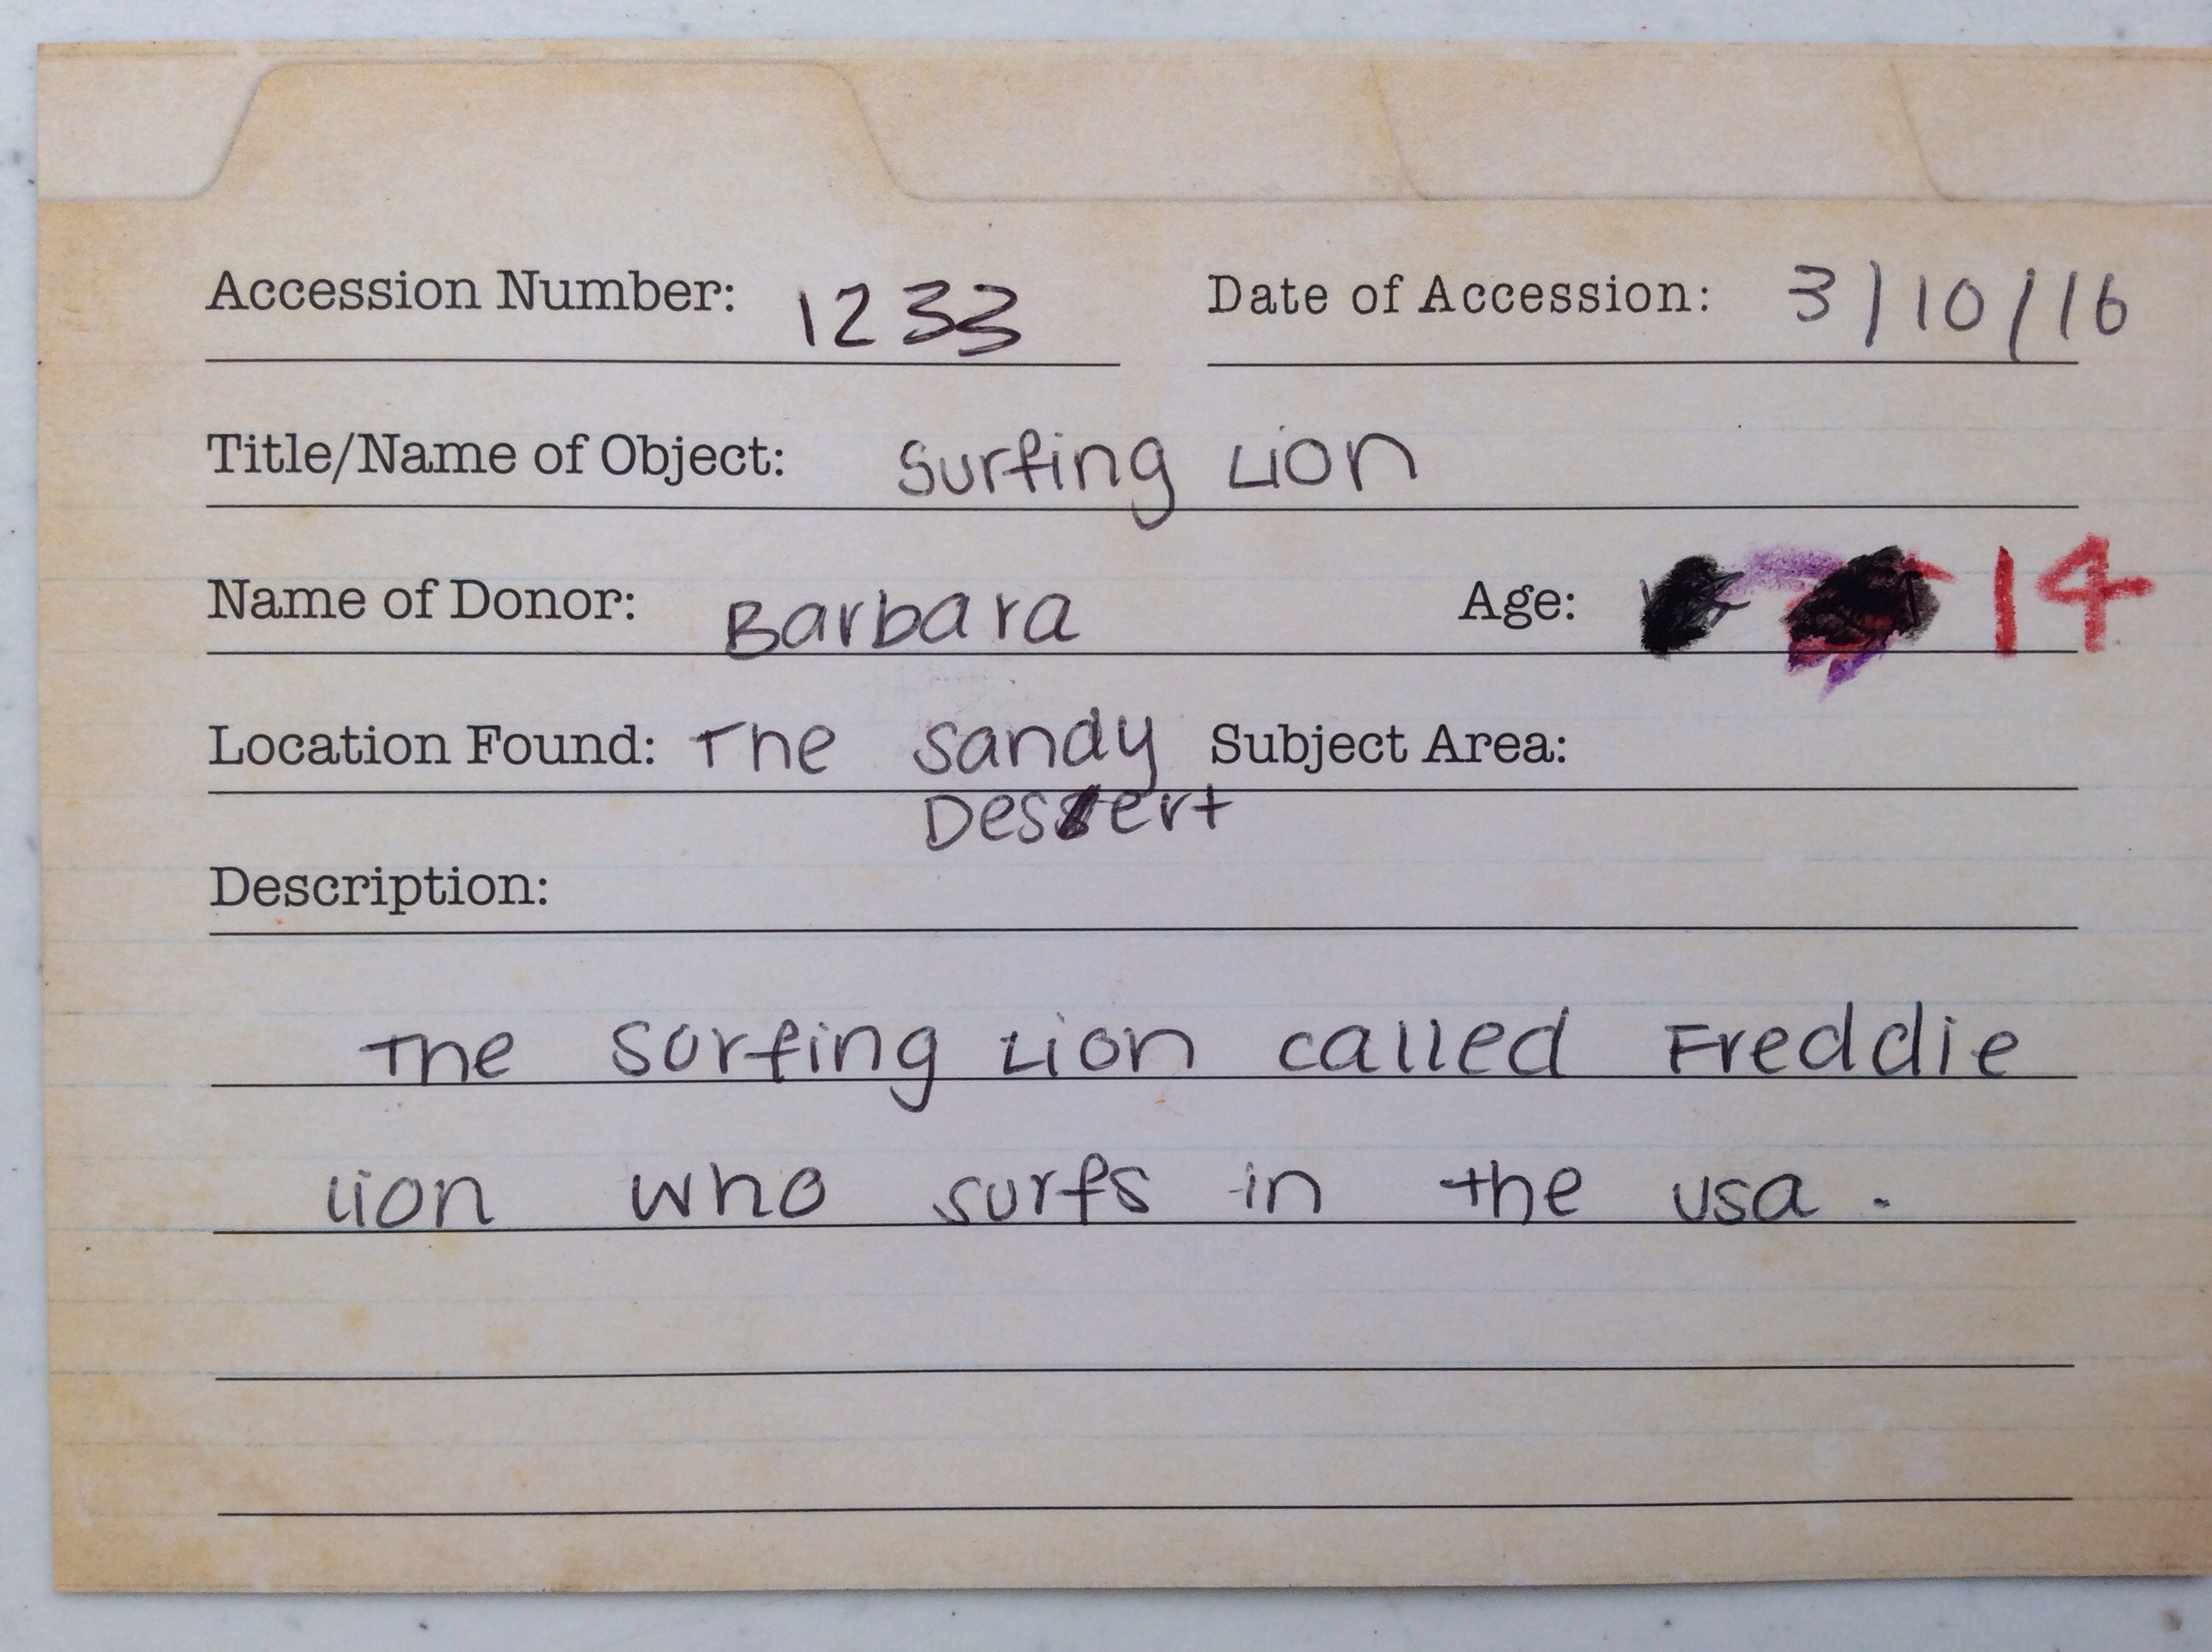 Accession Number: 1233 Date of Accession: 3/10/16
Title/Name of Object: Surfing Lion
Name of Donor: Barbara Age: 14
Location Found: The Sandy Subject Area:
Desert
Description:
The Surfing Lion called Freddie
lion who surfs in the usa .